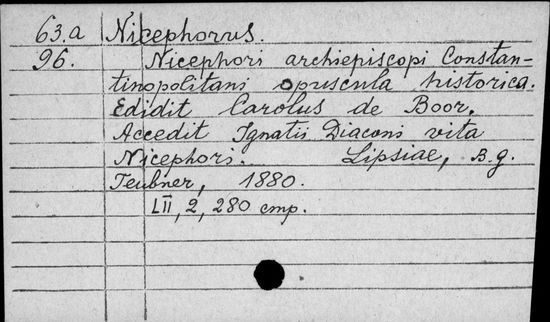 63.a Nicephorus.
96. Nicephori archiepiscopi Constan-
tinopolitani opuscula historica.
Edidit Carolus de Boor.
Accedit Ignatii Diaconi vita
Nicephori. Lipsiae, B.g.
Teubner, 1880.
LII, 2, 280 cmp.